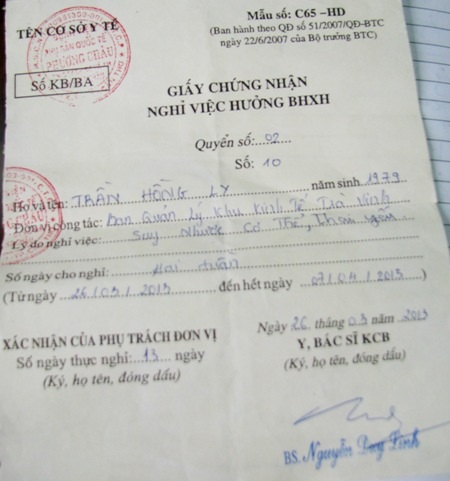 TÊN CƠ SỞ Y TẾ
PHƯƠNG CHÂU
Số KB/BA
Mẫu số: C65 –HD
(Ban hành theo QĐ số 51/2007/QĐ-BTC
ngày 22/6/2007 của Bộ trưởng BTC)
GIẤY CHỨNG NHẬN
NGHỈ VIỆC HƯỞNG BHXH
Quyển số: 02
Số: 10
Họ và tên: TRẦN HỒNG LY năm sinh 1979
Đơn vị công tác: Ban Quản Lý Khu Kinh Tế Trà Vinh
Lý do nghỉ việc: Suy Nhược Cơ Thể, Thai
Số ngày cho nghỉ: Hai tuần
(Từ ngày 26/03/2013 đến hết ngày 07/04/2013)
XÁC NHẬN CỦA PHỤ TRÁCH ĐƠN VỊ
Số ngày thực nghỉ: 13 ngày
(Ký, họ tên, đóng dấu)
Ngày 26 tháng 03 năm 2013
Y, BÁC SĨ KCB
(Ký, họ tên, đóng dấu)
BS. Nguyễn Duy Linh